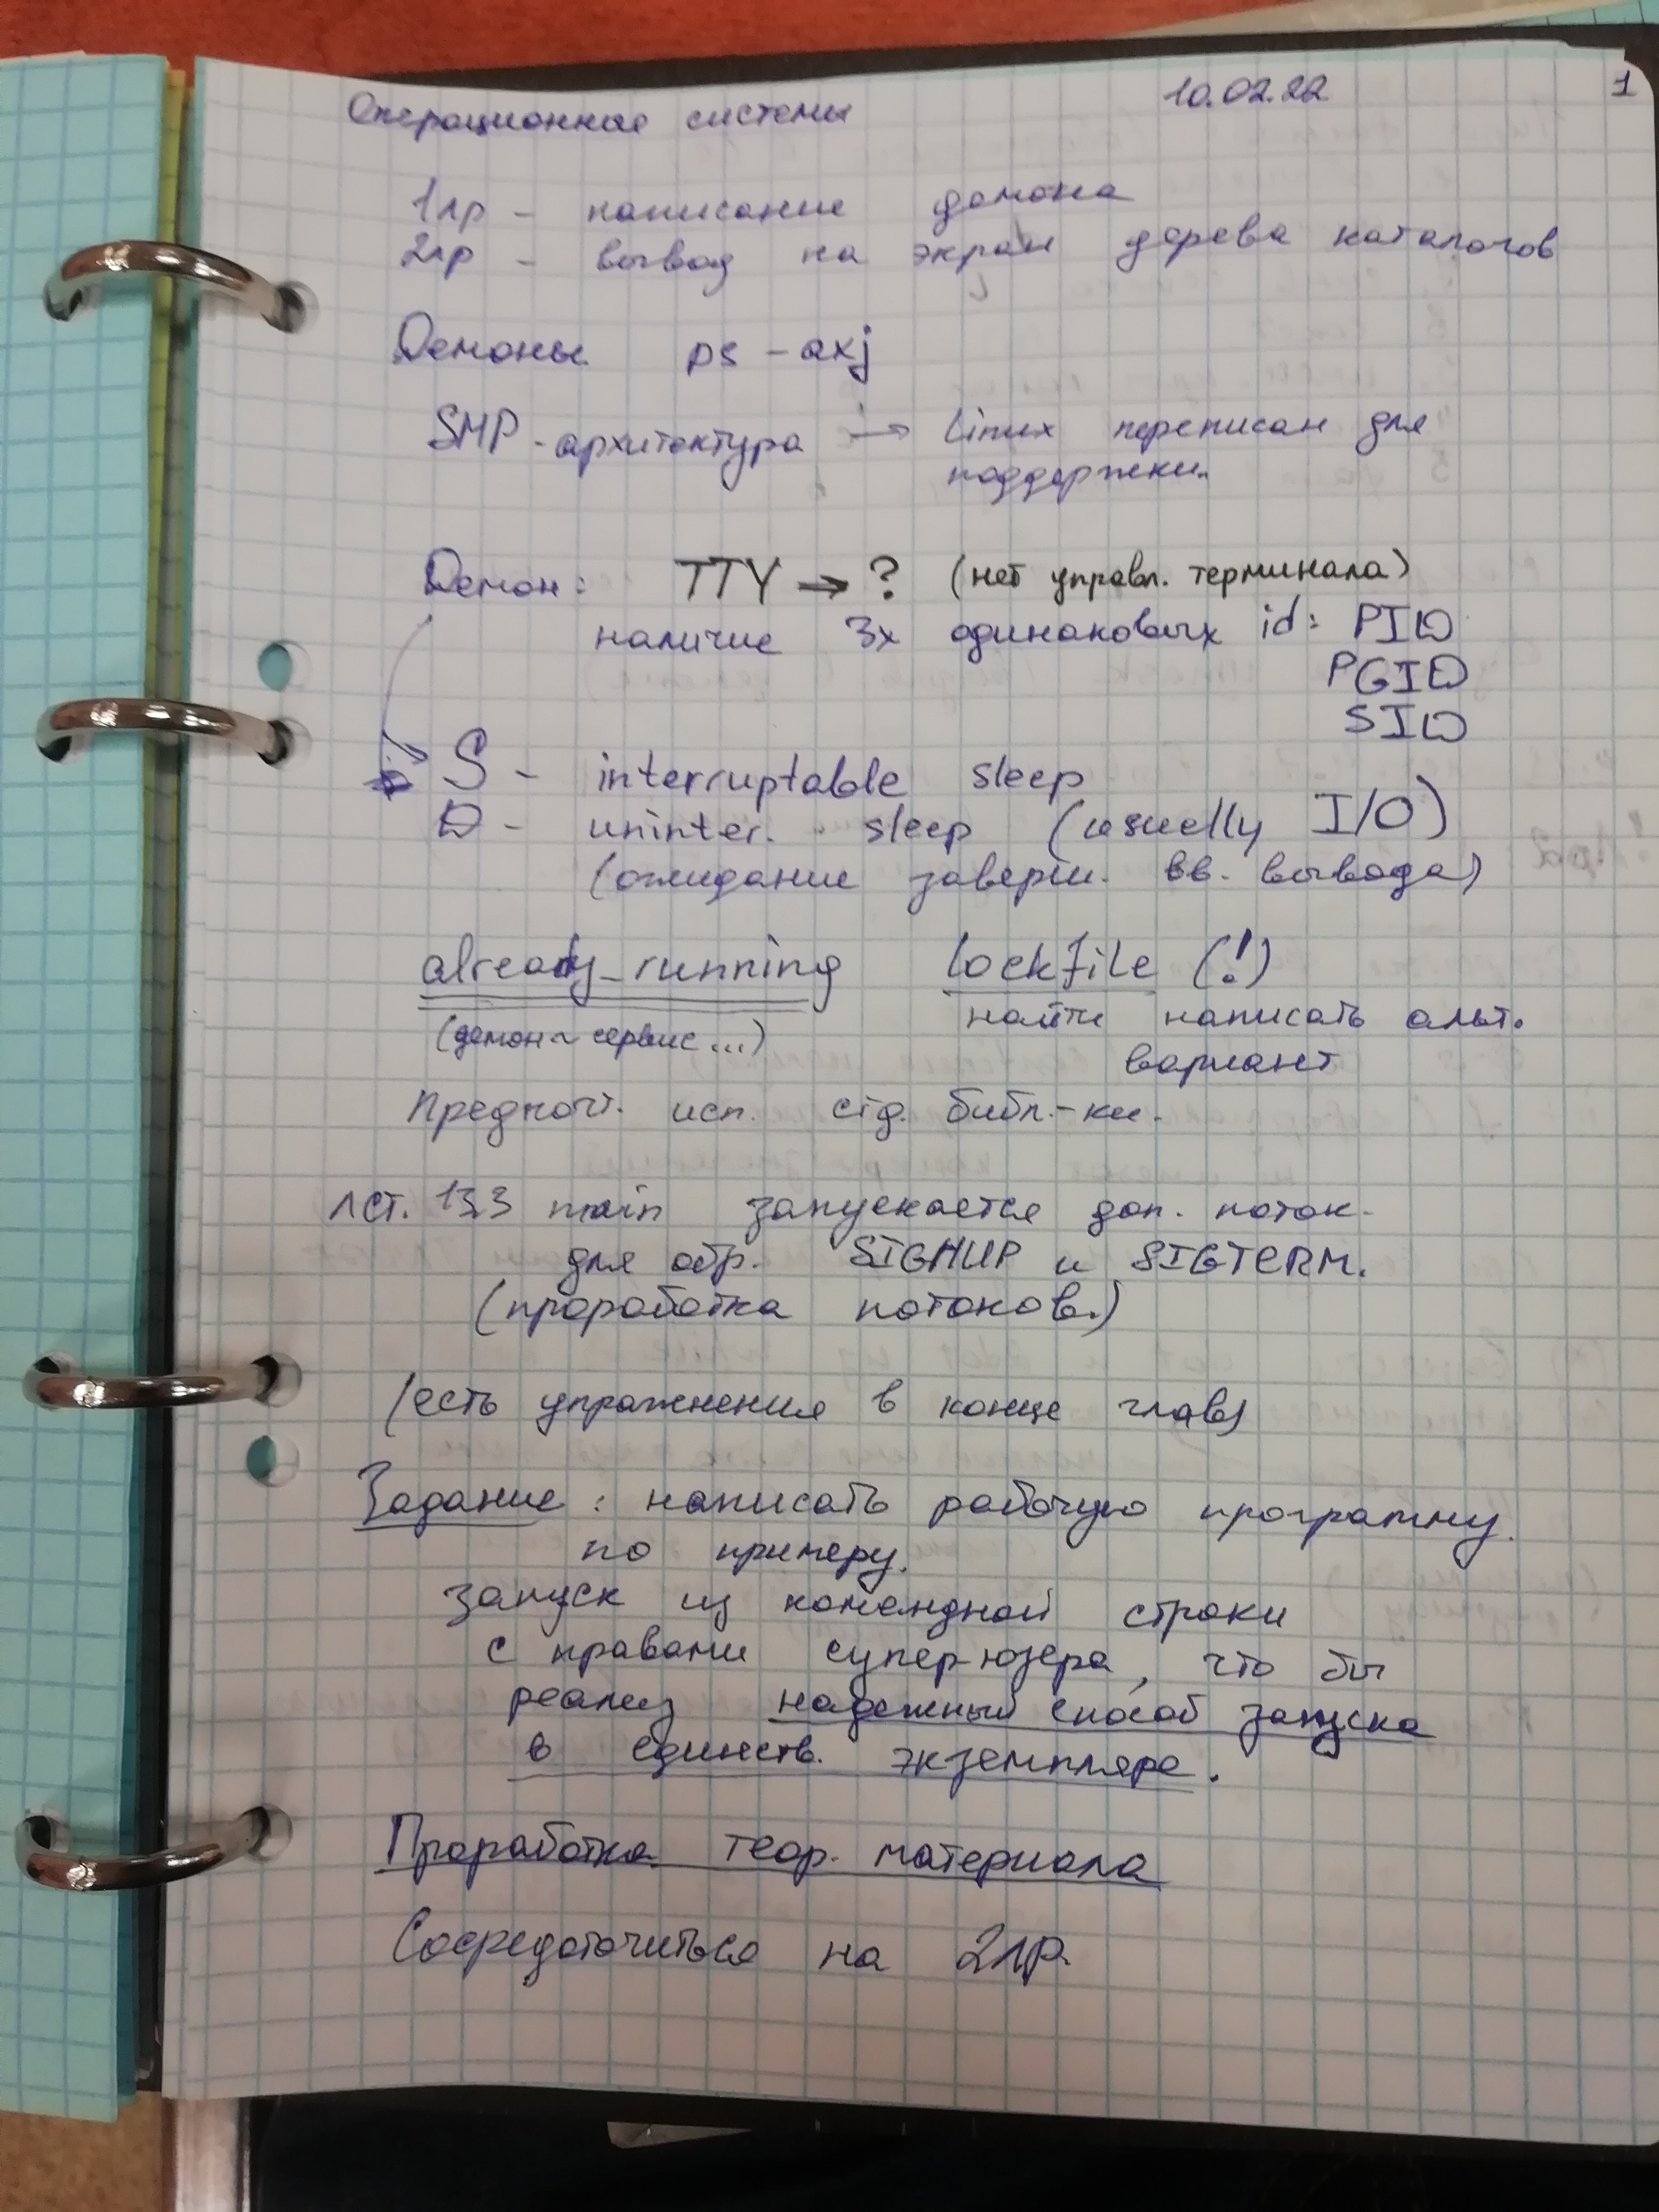 Операционные системы 10.02.22 1
1лр - написание демона
2лр - вывод на экран дерева каталогов
Демоны ps -axj
SMP - архитектура → Linux переписан для
поддержки.
Демон: TTY → ? (нет управл. терминала)
наличие 3х одинаковых id: PID
PGID
SID
S - interruptable sleep
D - uninter. sleep (usually I/O)
(ожидание заверш. вв. вывода)
already_running lockfile (!)
(демон ~ сервис...) найти написать альт.
вариант
Предпочт. исп. стд. библ.-ки.
лст. 13.3 main запускается доп. поток.
для обр. SIGHUP и SIGTERM.
(проработка потоков.)
(есть упражнения в конце глав)
Задание: написать рабочую программу.
по примеру.
запуск из командной строки
с правами суперюзера, что бы
реализ надежный способ запуска
в единств. экземпляре.
Проработка теор. материала
Сосредоточиться на 2лр.